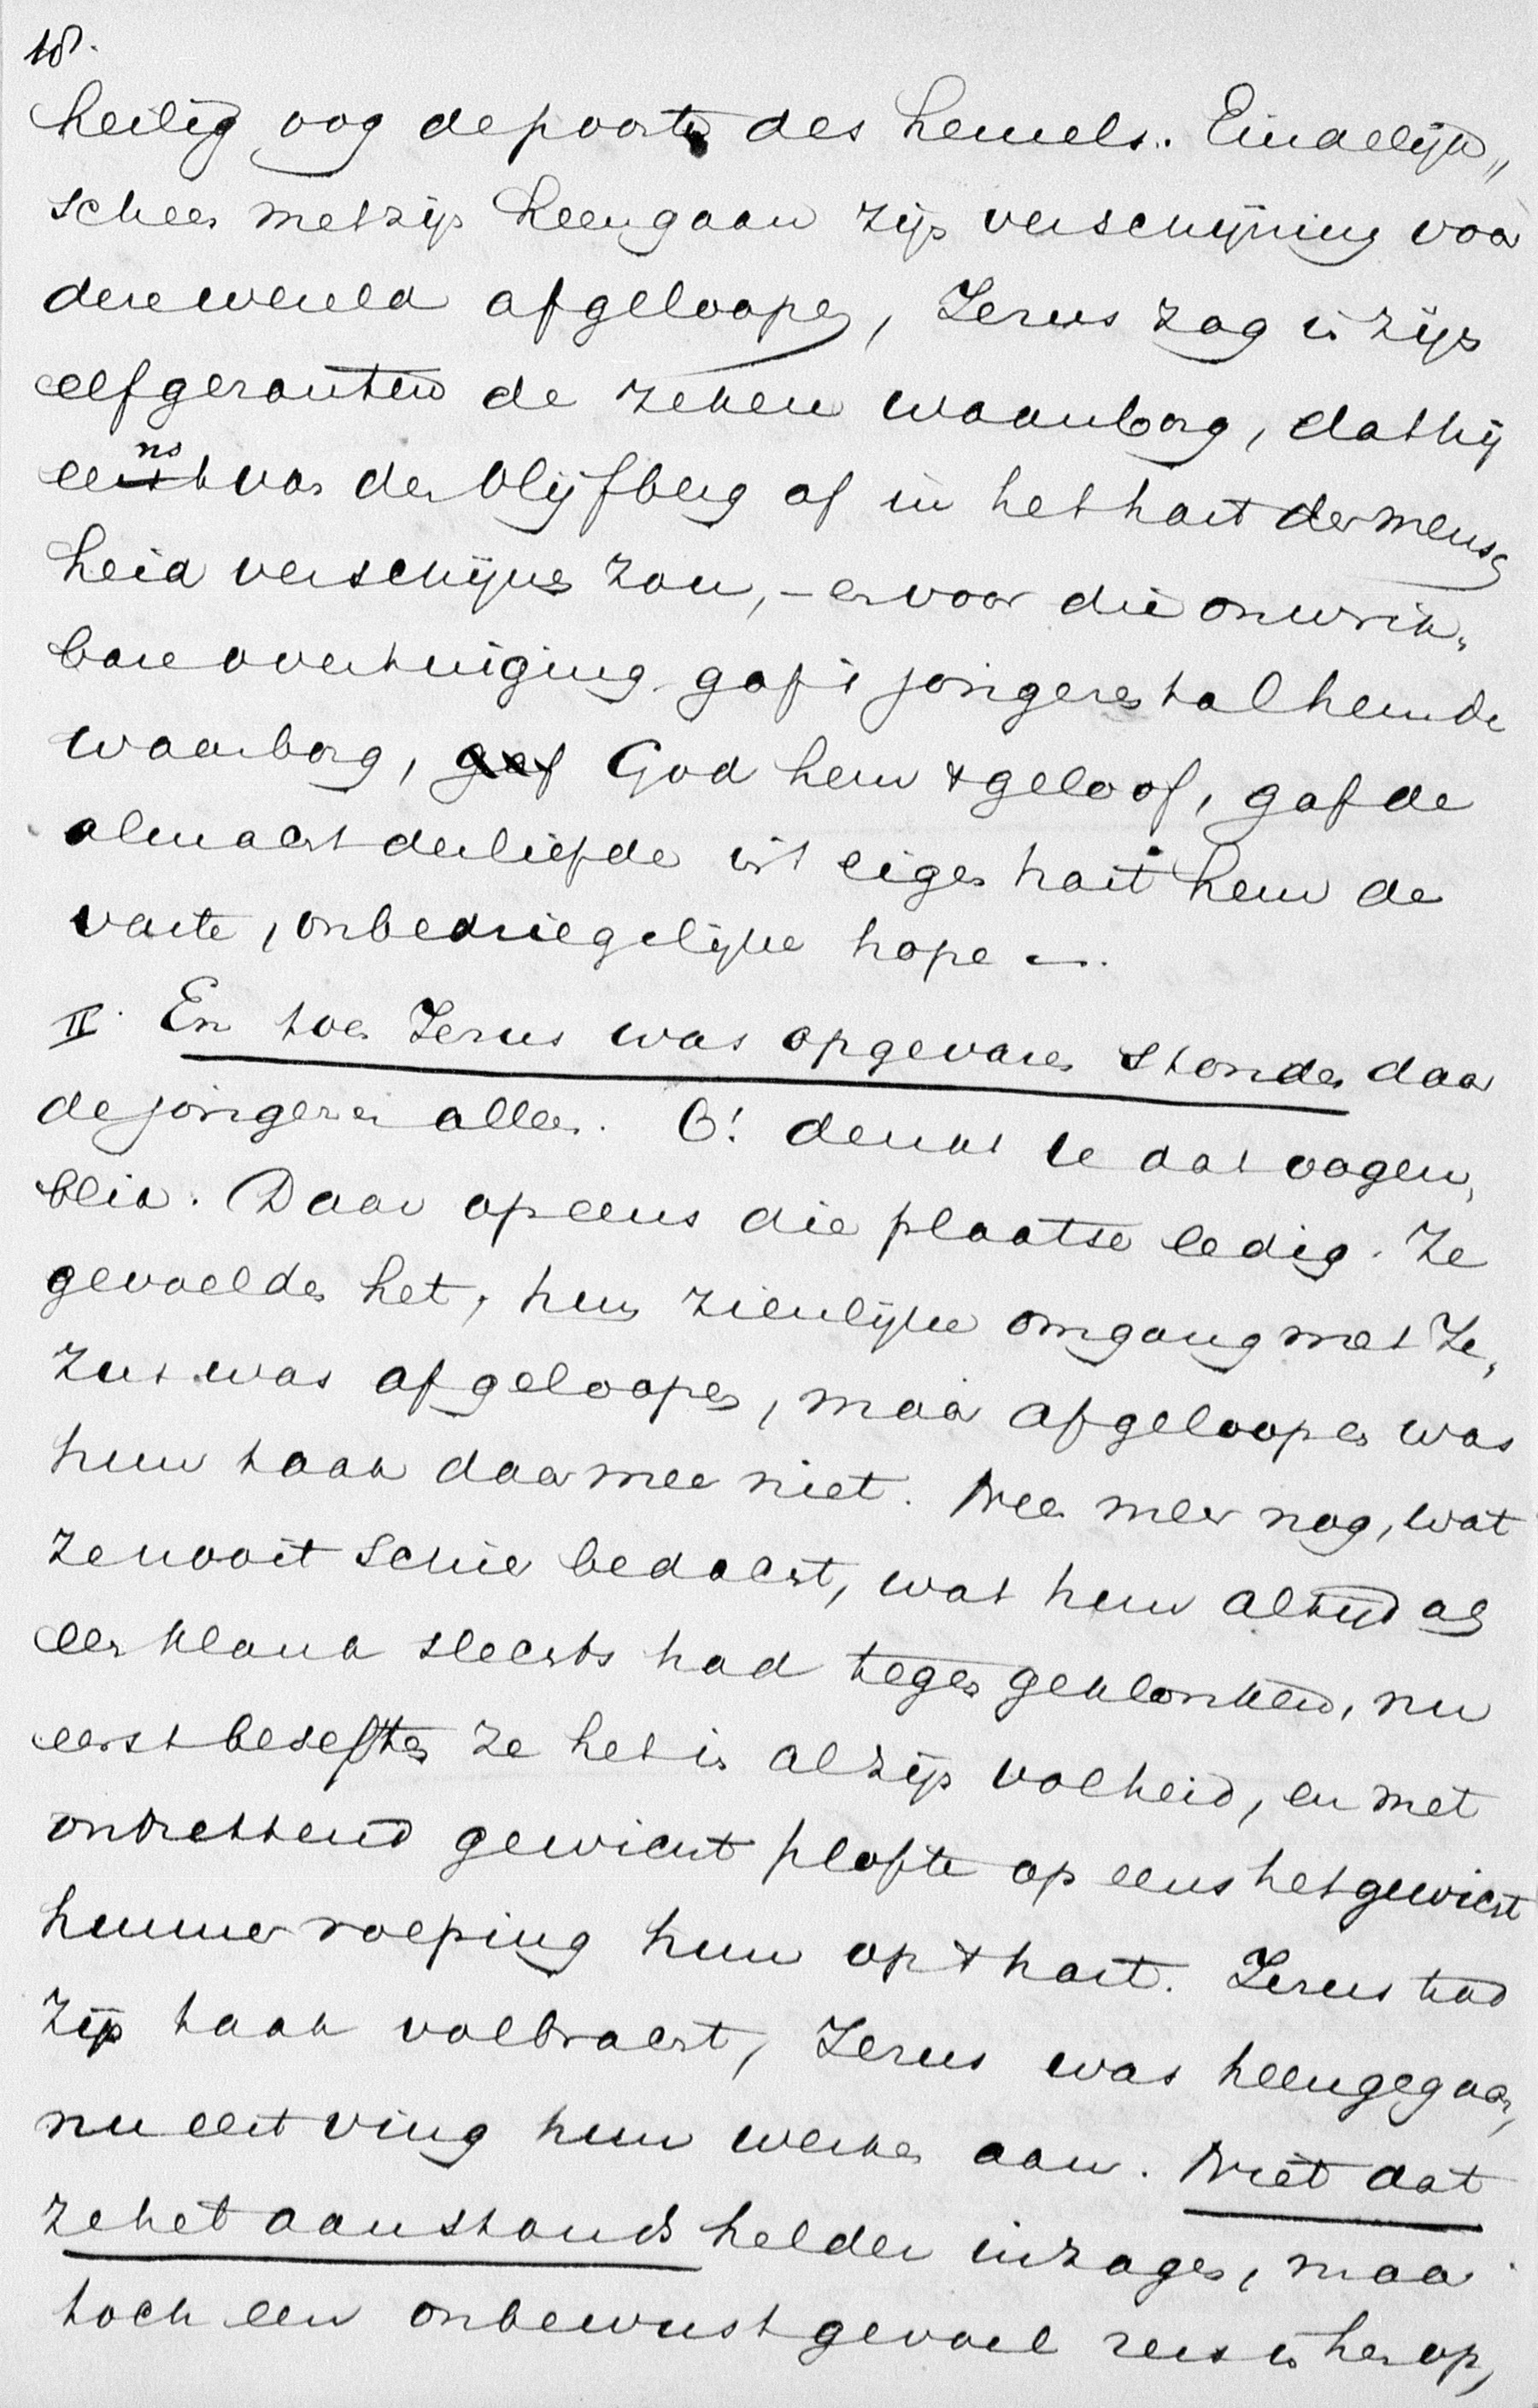 18.
heilig oog de poorten des hemels. Eindelijk"
scheen met zijn heengaan zijn verschijning voor
deze wereld afgeloopen, Jezus zag in zijn
elfgezanten de zekere waarborg, dat hij
eens van den Olijfberg af in het hart der mensch
heid verschijnen zou, – en voor die onwrik„
bare overtuiging gaf 't jongerental hem de
waarborg, gaf God hem 't geloof, gaf de
almacht der liefde uit eigen hart hem de
vaste, onbedriegelijke hope –.
II. En toen Jezus was opgevaren stonden daar
de jongeren alleen. O! denkt U dat oogen„
blik. Daar opeens die plaatse ledig. Ze
gevoelden het, hun zienlijke omgang met Je„
zus was afgeloopen, maar afgeloopen was
hun taak daarmee niet. Neen meer nog, wat
ze nooit schier bedacht, wat hun altijd als
een klank slechts had tegen geklonken, nu
eerst beseften ze het in al zijn volheid, en met
ontzettend gewicht plofte op eens het gewicht
hunner roeping hun op 't hart. Jezus had
zijn taak volbracht, Jezus was heengegaan,
nu eerst ving hun werken aan. Niet dat
ze het aanstonds helder inzagen, maar
toch een onbewust gevoel rees in hen op,